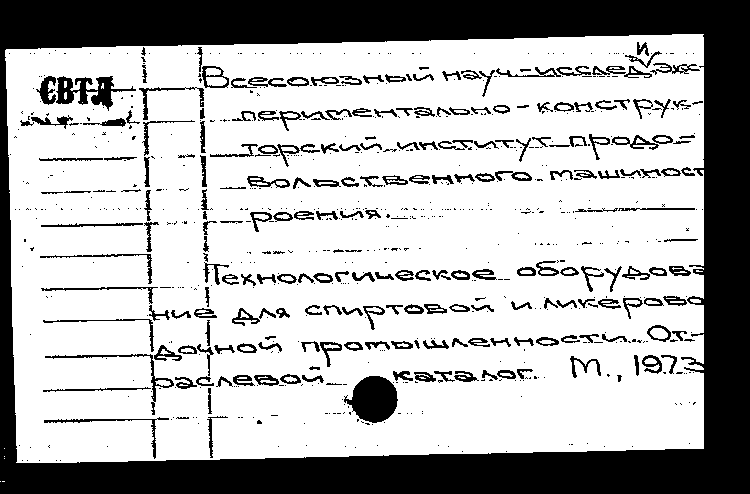 СВТЛ
Всесоюзный науч.-исслед. и экс-
периментально-конструк-
торский институт продо-
вольственного машиност
роения.
Технологическое оборудова
ние для спиртовой и ликерово
дочной промышленности. От-
раслевой каталог. М., 1973